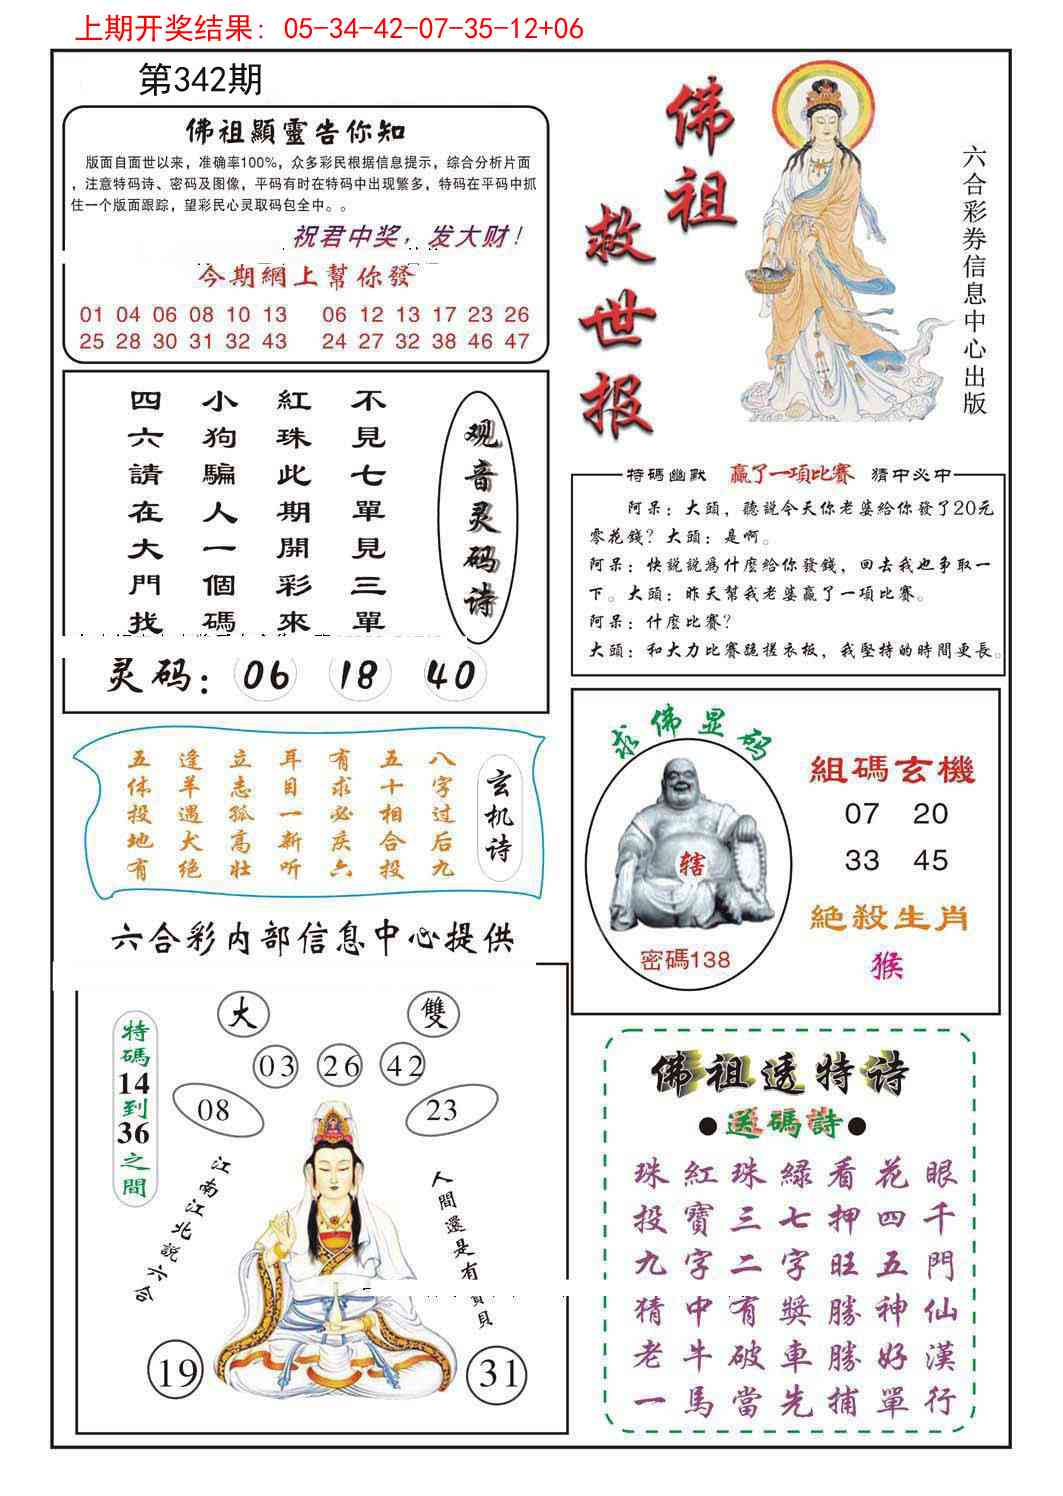 上期开奖结果: 05-34-42-07-35-12+06
第342期
佛祖顯靈告你知
版面自面世以来，准确率100%，众多彩民根据信息提示，综合分析片面
，注意特码诗、密码及图像，平码有时在特码中出现繁多，特码在平码中抓
住一个版面跟踪，望彩民心灵取码包全中。。
祝君中奖，发大财！
今期網上幫你發
01 04 06 08 10 13 06 12 13 17 23 26
25 28 30 31 32 43 24 27 32 38 46 47
佛祖
救世报
六合彩券信息中心出版
观音灵码诗
不見七單見三單
紅珠此期開彩來
小狗騙人一個碼
四六請在大門找
灵码：06 18 40
特碼幽默 贏了一項比賽 猜中必中
阿呆：大頭，聽說今天你老婆給你發了20元
零花錢？大頭：是啊。
阿呆：快說說爲什麼給你發錢，回去我也爭取一
下。大頭：昨天幫我老婆贏了一項比賽。
阿呆：什麼比賽？
大頭：和大力比賽跪搓衣板，我堅持的時間更長。
玄机诗
八字过后九
五十相合投
有求必疾六
耳目一新听
立志孤高壮
逢羊遇犬绝
五体投地有
六合彩内部信息中心提供
求佛显码
辖
密碼138
組碼玄機
07 20
33 45
絕殺生肖
猴
特碼14到36之間
大 雙
03 26 42
08 23
江南江北説六合
人間還是有寶貝
19 31
佛祖透特诗
●送碼詩●
眼千門仙漢行
花四五神好單
看押旺勝勝捕
綠七字獎車先
珠三二有破當
紅寶字中牛馬
珠投九猜老一